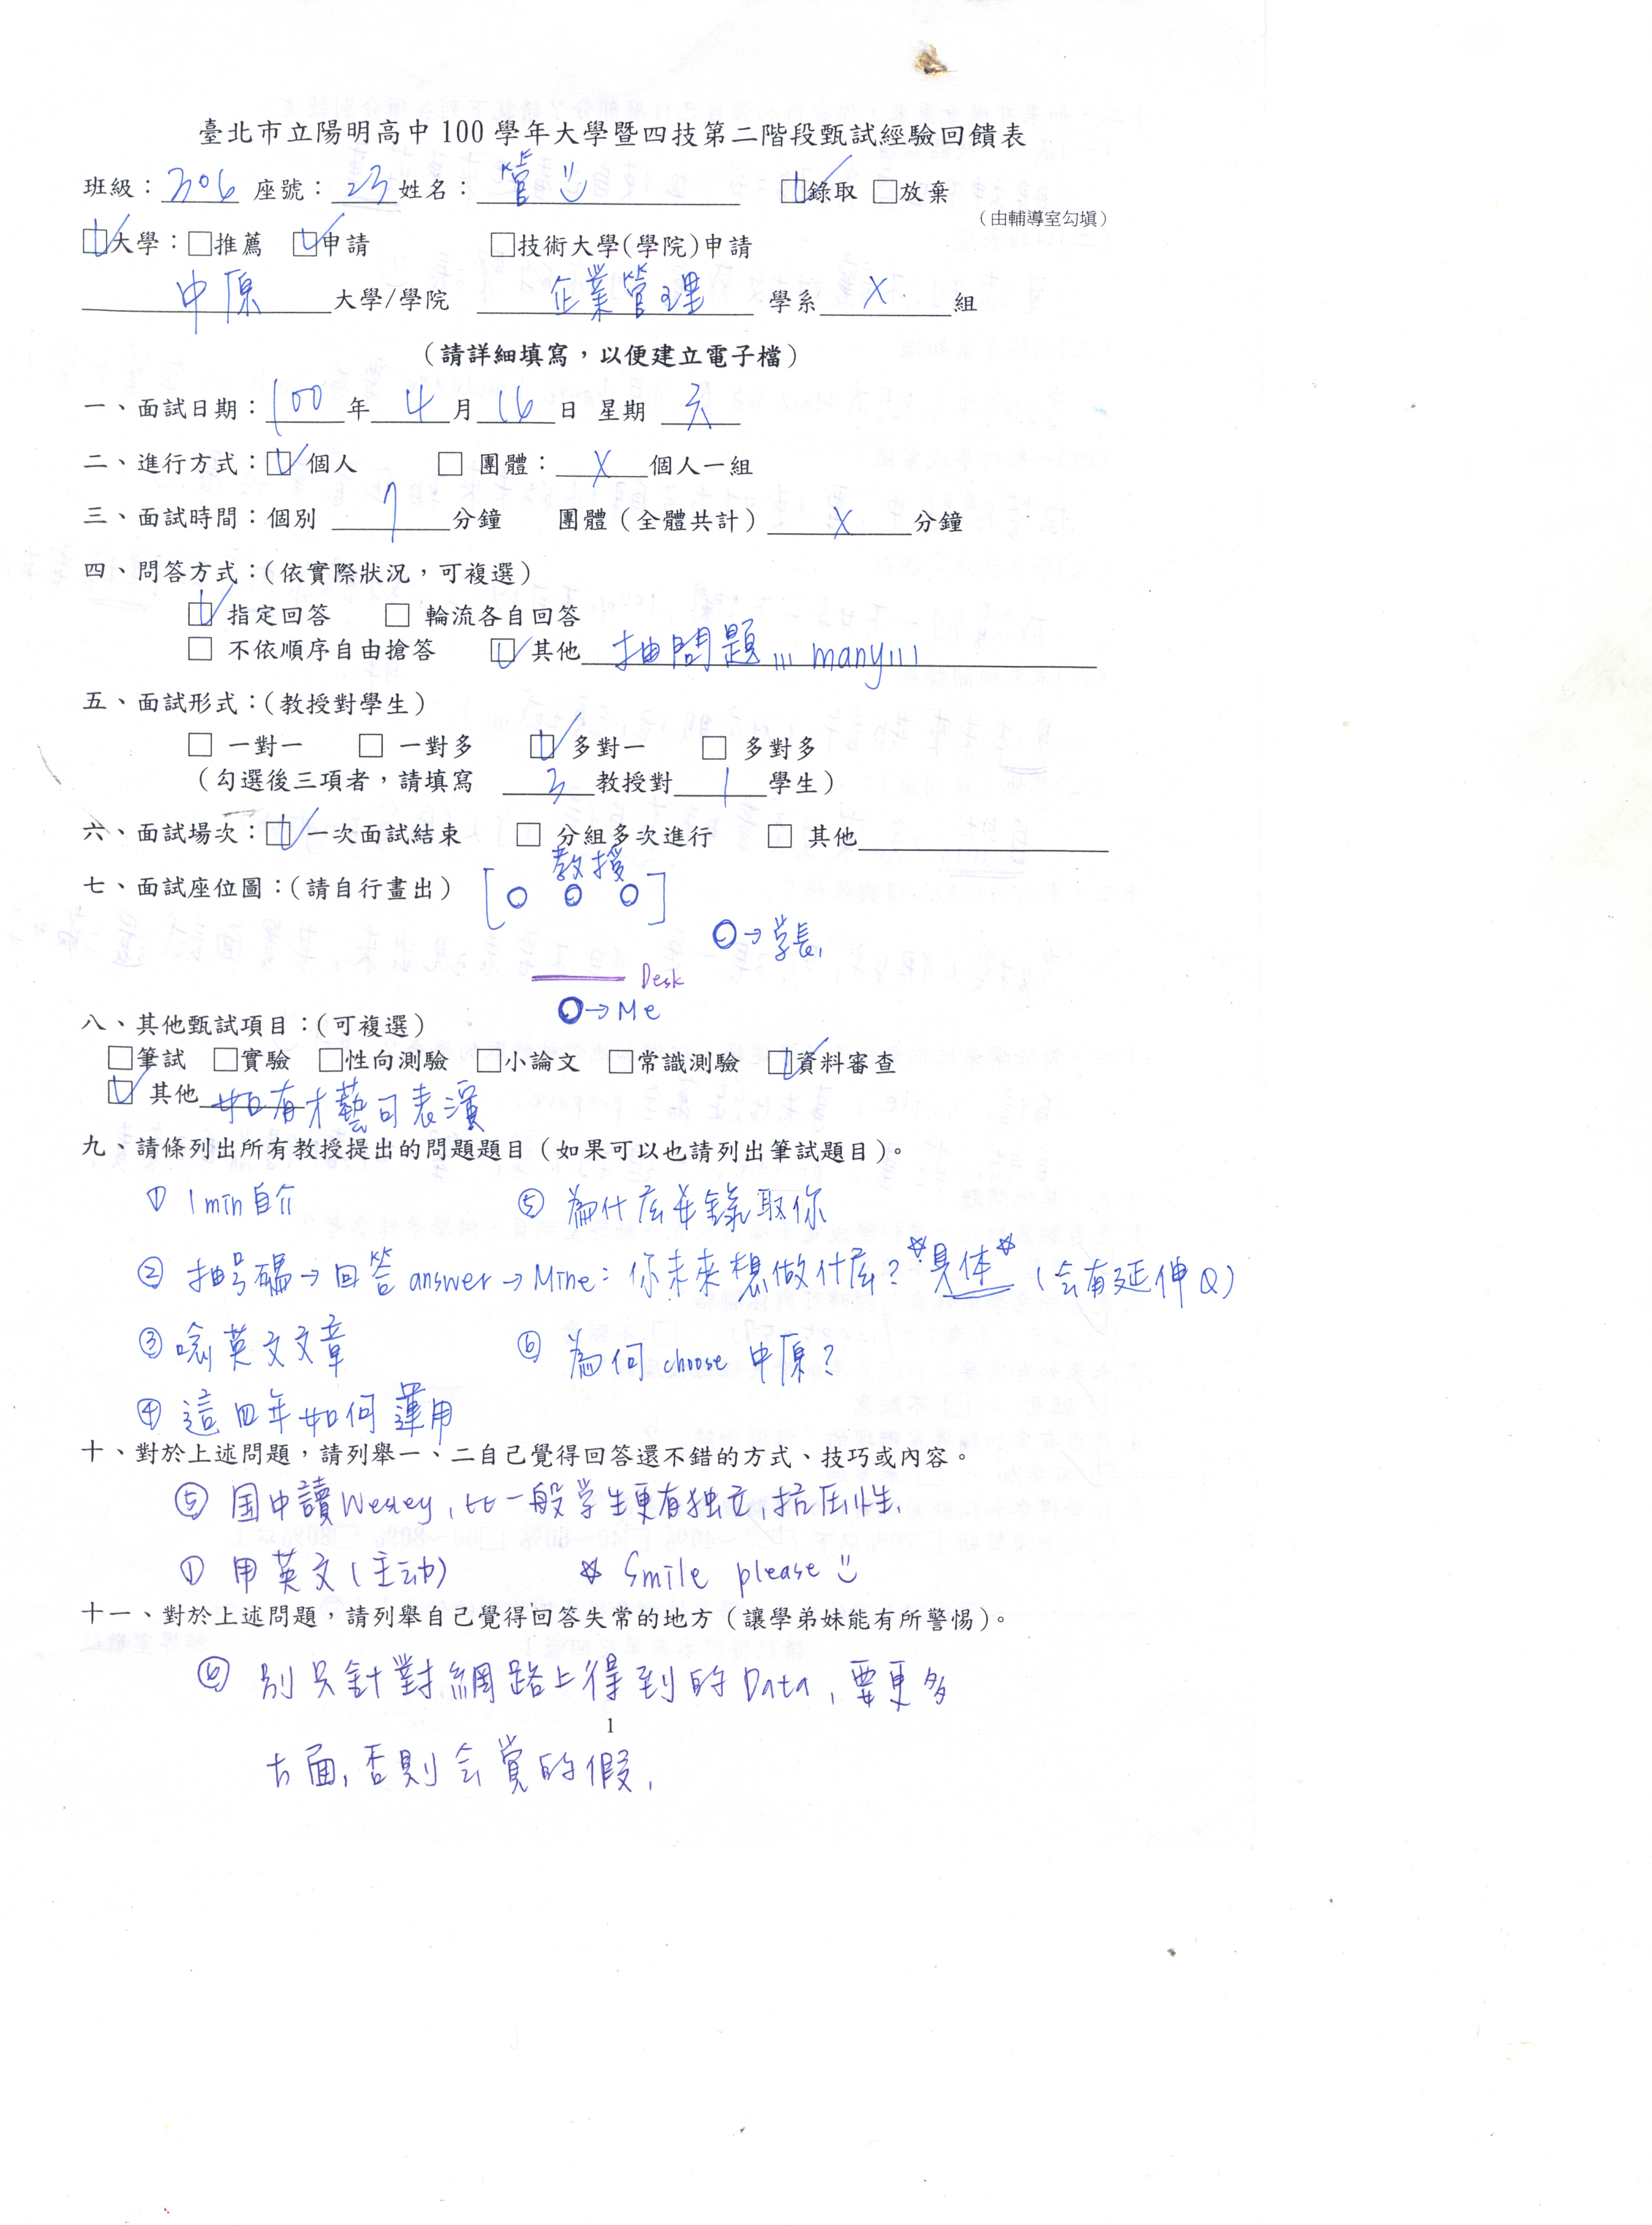 臺北市立陽明高中 100 學年大學暨四技第二階段甄試經驗回饋表
班級：306 座號：23 姓名：管 □錄取 □放棄
（由輔導室勾填）
□大學：□推薦 □申請 □技術大學(學院)申請
中原大學/學院 企業管理 學系 X 組
（請詳細填寫，以便建立電子檔）
一、面試日期：100年4月16日 星期 六
二、進行方式：□ 個人 □ 團體：X個人一組
三、面試時間：個別 7 分鐘 團體（全體共計）X分鐘
四、問答方式：(依實際狀況，可複選)
□ 指定回答 □ 輪流各自回答
□ 不依順序自由搶答 □ 其他 抽問題 !!! many!!!
五、面試形式：(教授對學生)
□ 一對一 □ 一對多 □ 多對一 □ 多對多
（勾選後三項者，請填寫 3 教授對 1 學生）
六、面試場次：□ 一次面試結束 □ 分組多次進行 □ 其他
教授
七、面試座位圖：(請自行畫出)
→学長
Desk
→Me
八、其他甄試項目：(可複選)
□筆試 □實驗 □性向測驗 □小論文 □常識測驗 □資料審查
□ 其他 如有才藝可表演
九、請條列出所有教授提出的問題題目（如果可以也請列出筆試題目）。
① 1min自介 ⑤ 為什麼要錄取你
② 抽号碼→回答answer→Mine：你未來想做什麼？☆具体☆（会有延伸Q）
③ 唸英文文章 ⑥ 為何choose 中原？
④ 這四年如何運用
十、對於上述問題，請列舉一、二自己覺得回答還不錯的方式、技巧或內容。
⑤ 国中讀Wesley，比一般学生更有独立，抗压性.
① 用英文(主动) ☆ Smile please
十一、對於上述問題，請列舉自己覺得回答失常的地方（讓學弟妹能有所警惕）。
⑥ 別只針對網路上得到的Data，要更多
1
方面，否則会覚的假.